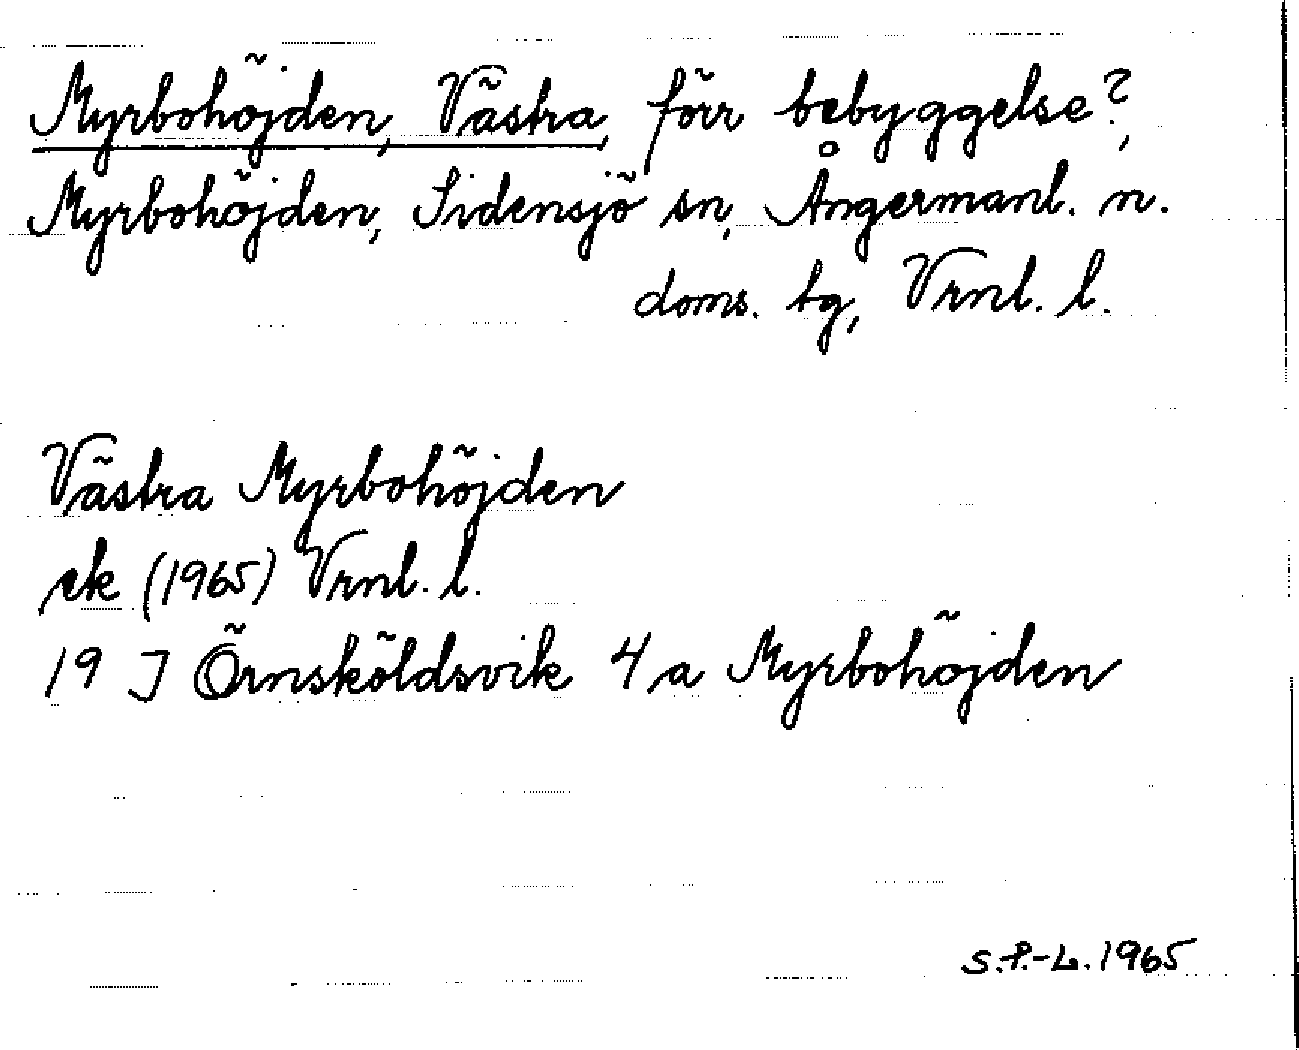 Myrbohöjden, Västra, förr bebyggelse?,
Myrbohöjden, Sidensjö sn, Ångermanl. n.
doms. tg, Vrnl. l.
Västra Myrbohöjden
ek (1965) Vrnl. l.
19 J Örnsköldsvik 4 a Myrbohöjden
S.P.-L. 1965